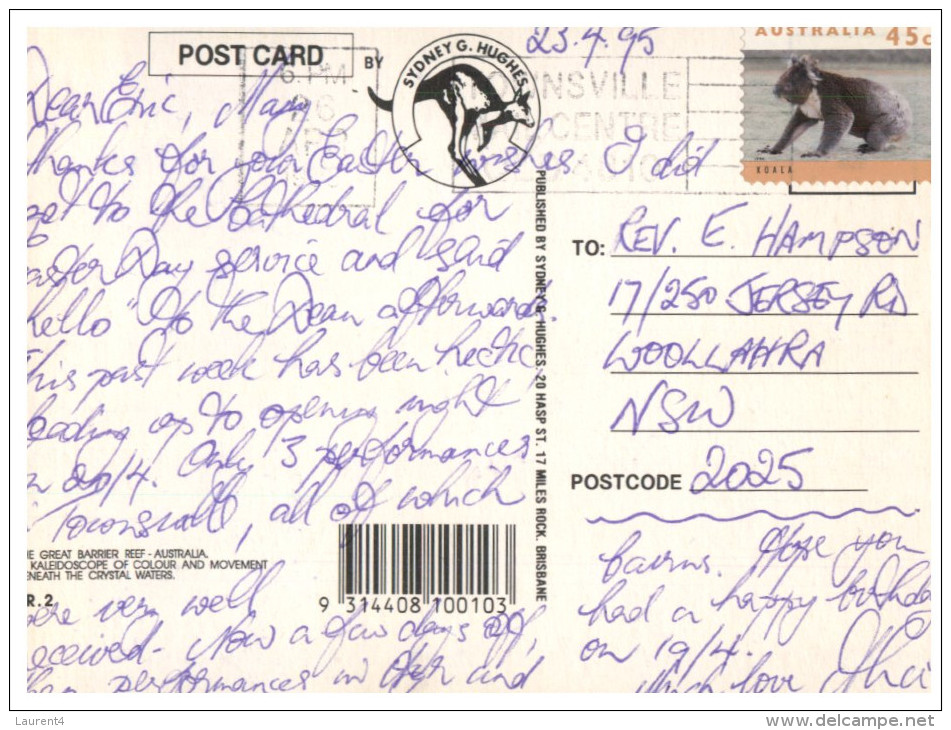 POST CARD
BY
SYDNEY G. HUGHES
23.4.95
AUSTRALIA 45c
KOALA
6 PM
TOWNSVILLE
CENTRE
Dear Eric, Mary
thanks for your Easter wishes. I did
get to the Cathedral for
aster Day service and said
hello "to the Dean afterwards.
This past week has been hectic
leading up to opening night
on 20/4. Only 3 performances
in Townsville, all of which
E GREAT BARRIER REEF - AUSTRALIA.
KALEIDOSCOPE OF COLOUR AND MOVEMENT
ENEATH THE CRYSTAL WATERS.
R.2
9 314408 100103
were very well
received. Now a few days off,
then performances in Ayr and
PUBLISHED BY SYDNEY G. HUGHES, 20 HASP ST. 17 MILES ROCK. BRISBANE
TO: REV. E. HAMPSON
17/250 JERSEY RD
WOOLLAHRA
NSW
POSTCODE 2025
Cairns. Hope you
had a happy birthda
on 19/4.
Much love
Laurent4
www.delcampe.net